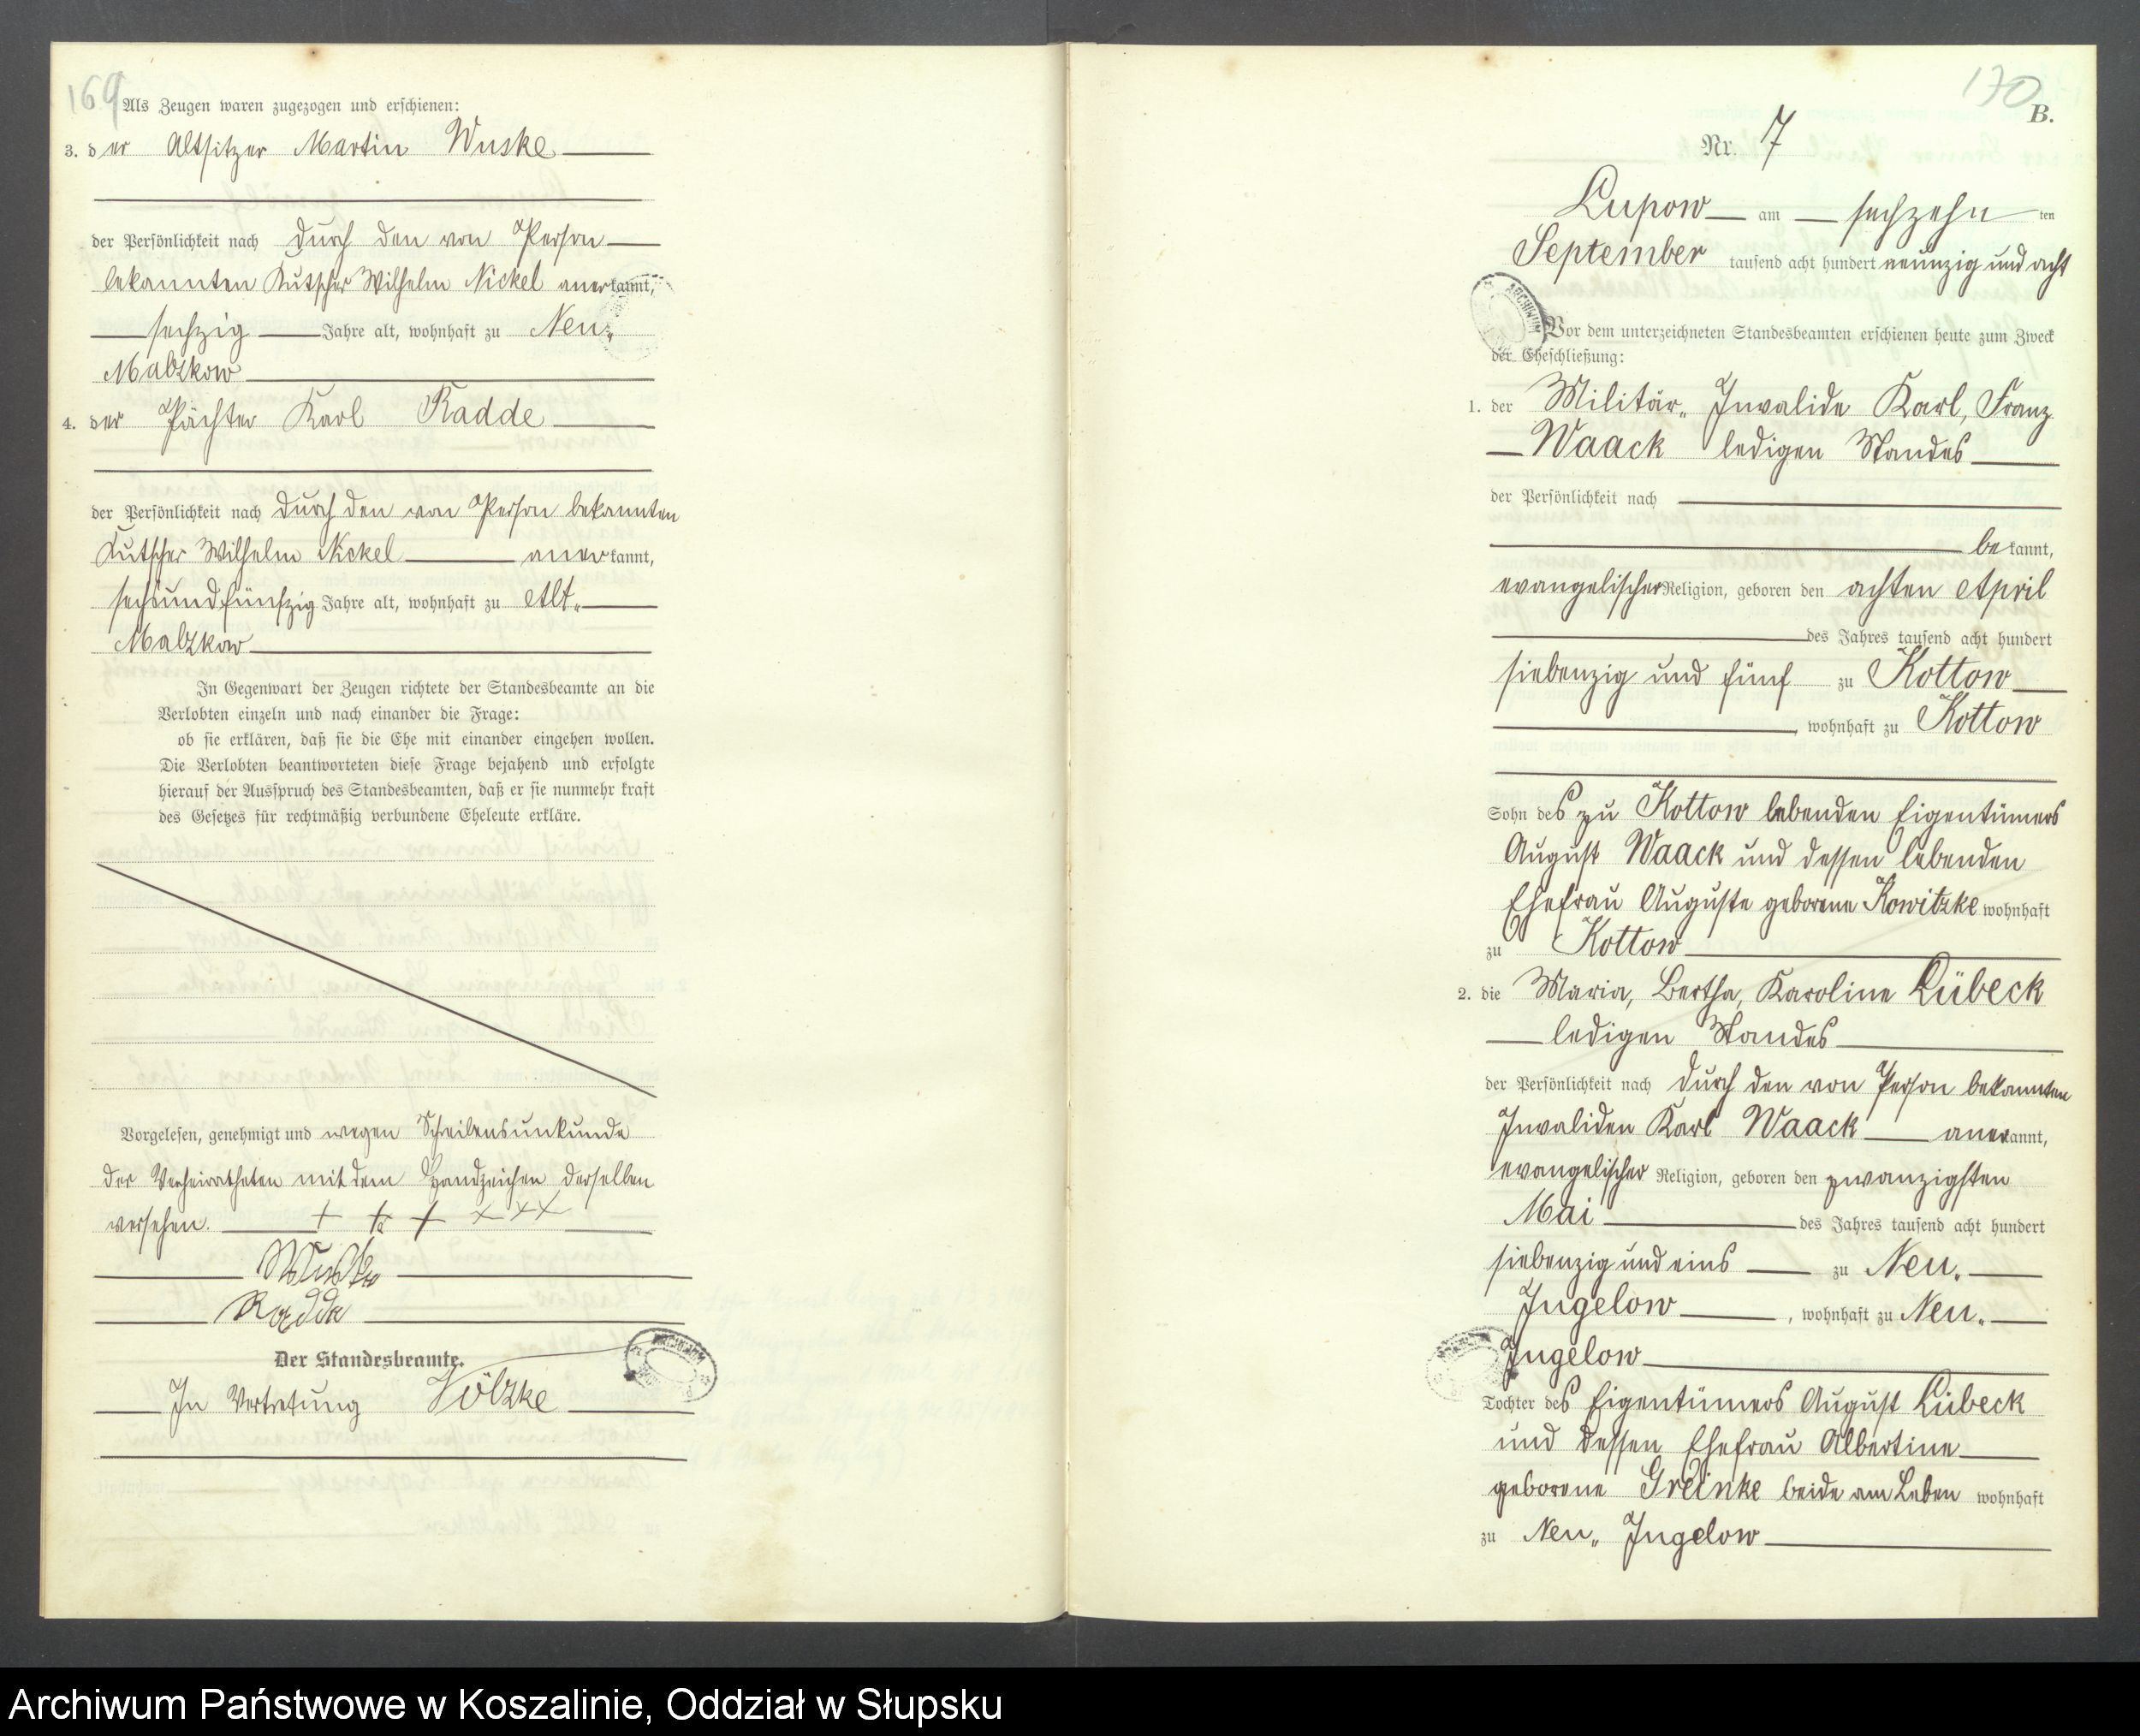 169
Als Zeugen waren zugezogen und erschienen:
3. der Altsitzer Martin Wuske
der Persönlichkeit nach durch den von Person
bekannten Kutscher Wilhelm Nickel anerkannt,
sechzig Jahre alt, wohnhaft zu Neu-
Malzkow
4. der Pächter Karl Radde
der Persönlichkeit nach durch den von Person bekannten
Kutscher Wilhelm Nickel anerkannt,
sechsundfünfzig Jahre alt, wohnhaft zu Alt-
Malzkow
In Gegenwart der Zeugen richtete der Standesbeamte an die
Verlobten einzeln und nach einander die Frage:
ob sie erklären, daß sie die Ehe mit einander eingehen wollen.
Die Verlobten beantworteten diese Frage bejahend und erfolgte
hierauf der Ausspruch des Standesbeamten, daß er sie nunmehr kraft
des Gesetzes für rechtmäßig verbundene Eheleute erkläre.
Vorgelesen, genehmigt und wegen Schreibensunkunde
der Verheiratheten mit dem Handzeichen derselben
versehen. + + + +++
Wuske
Radde
Der Standesbeamte.
In Vertretung Völzke
170
B.
Nr. 7
Lupow am sechzehnten
September tausend acht hundert neunzig und acht
Vor dem unterzeichneten Standesbeamten erschienen heute zum Zweck
der Eheschließung:
1. der Militär-Invalide Karl, Franz
Waack ledigen Standes
der Persönlichkeit nach
bekannt,
evangelischer Religion, geboren den achten April
des Jahres tausend acht hundert
siebenzig und fünf zu Kottow
, wohnhaft zu Kottow
Sohn des zu Kottow lebenden Eigentümers
August Waack und dessen lebenden
Ehefrau Auguste geborene Kowitzke wohnhaft
zu Kottow
2. die Maria, Bertha, Karoline Lübeck
ledigen Standes
der Persönlichkeit nach durch den von Person bekannten
Invaliden Karl Waack anerkannt,
evangelischer Religion, geboren den zwanzigsten
Mai des Jahres tausend acht hundert
siebenzig und eins zu Neu-
Jugelow, wohnhaft zu Neu-
Jugelow
Tochter des Eigentümers August Lübeck
und dessen Ehefrau Albertine
geborene Greinke beide am Leben wohnhaft
zu Neu-Jugelow
Archiwum Państwowe w Koszalinie, Oddział w Słupsku